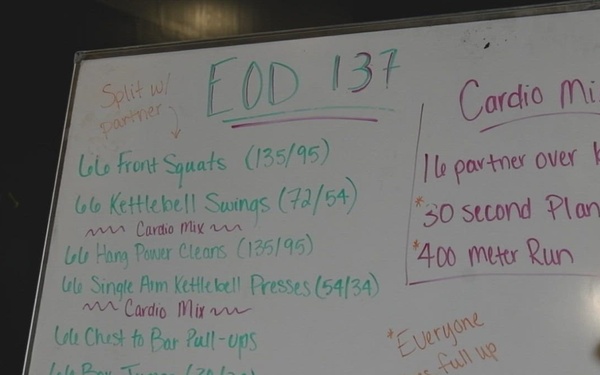 EOD 137
Split w/
partner
66 Front Squats (135/95)
66 Kettlebell Swings (72/54)
Cardio Mix
66 Hang Power Cleans (135/95)
66 Single Arm Kettlebell Presses (54/34)
Cardio Mix
66 Chest to Bar Pull-ups
66
Cardio
16 partner over
*30 second
*400 meter Run
*Everyone
full up